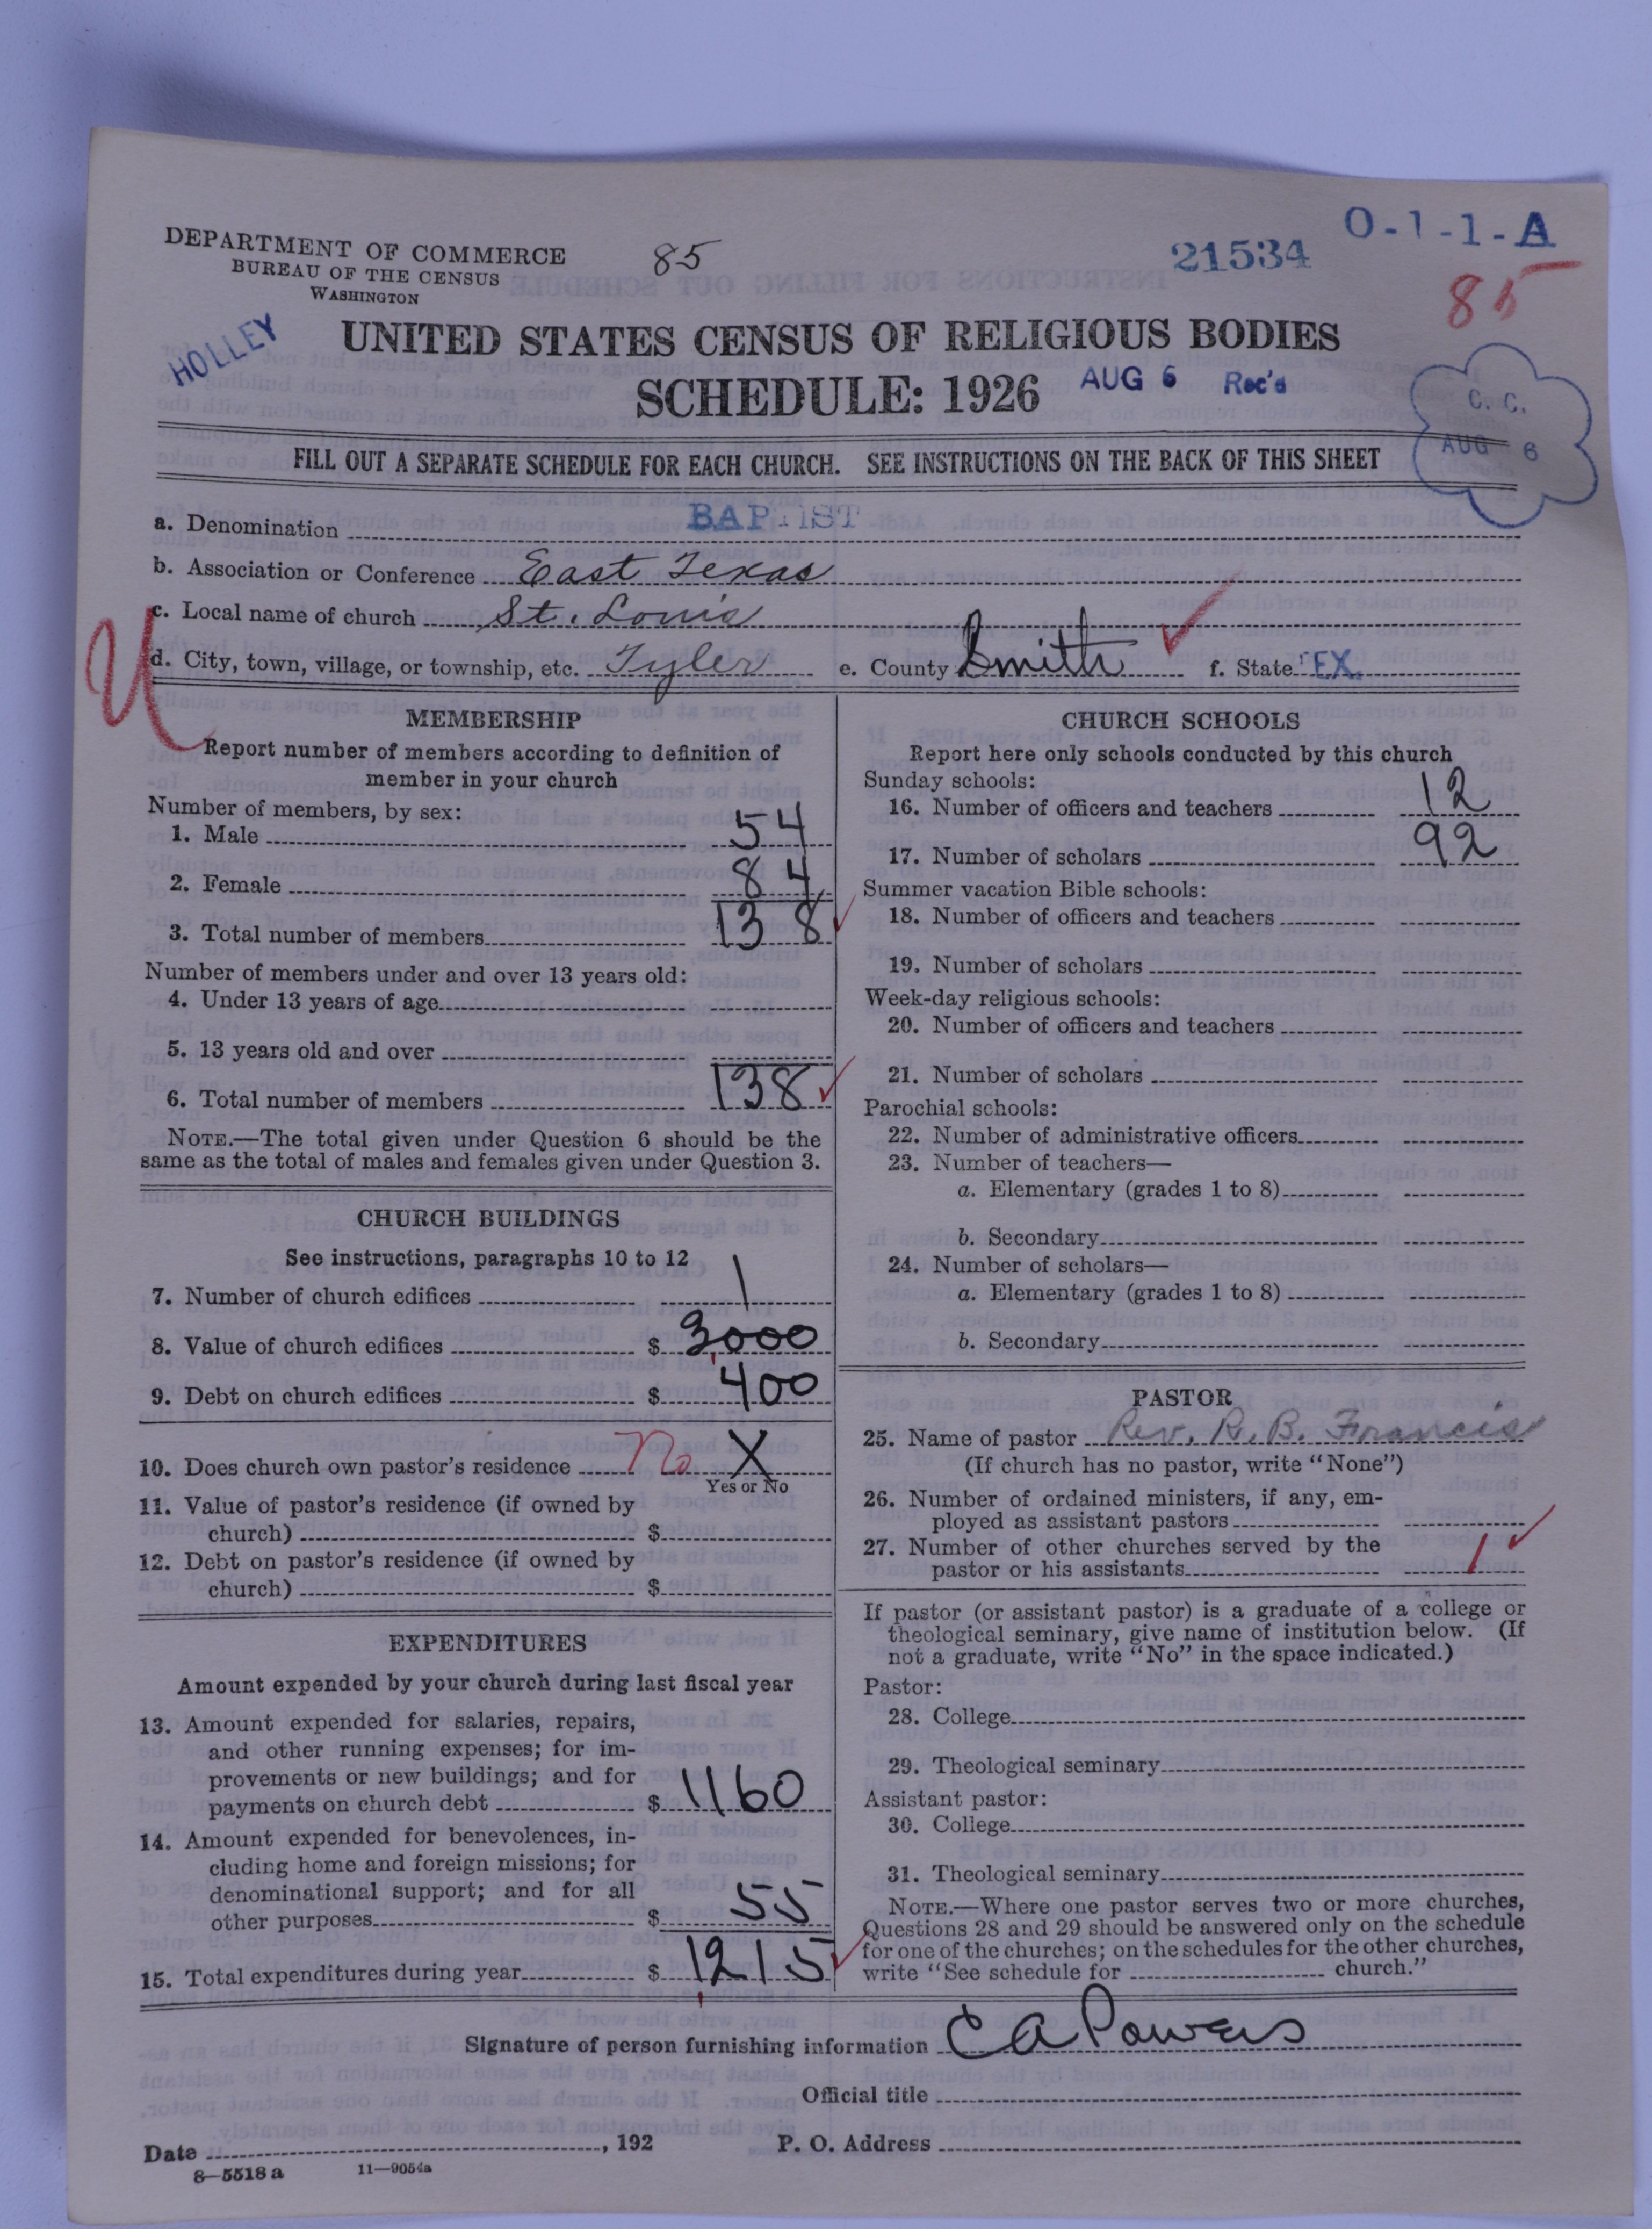 O-1-1-A
DEPARTMENT OF COMMERCE 85 21534
BUREAU OF THE CENSUS
WASHINGTON 85
HOLLEY
UNITED STATES CENSUS OF RELIGIOUS BODIES
SCHEDULE: 1926 AUG 6 Rec'd
C. C.
AUG 6
FILL OUT A SEPARATE SCHEDULE FOR EACH CHURCH. SEE INSTRUCTIONS ON THE BACK OF THIS SHEET
a. Denomination BAPTIST
b. Association or Conference East Texas
c. Local name of church St. Louis
d. City, town, village, or township, etc. Tyler e. County Smith f. State TEX.
U
MEMBERSHIP
Report number of members according to definition of
member in your church
Number of members, by sex:
1. Male 54
2. Female 84
3. Total number of members 138
Number of members under and over 13 years old:
4. Under 13 years of age
5. 13 years old and over
6. Total number of members 138
NOTE.—The total given under Question 6 should be the
same as the total of males and females given under Question 3.
CHURCH BUILDINGS
See instructions, paragraphs 10 to 12
7. Number of church edifices 1
8. Value of church edifices $ 3,000
9. Debt on church edifices $ 400
10. Does church own pastor's residence No X
Yes or No
11. Value of pastor's residence (if owned by
church) $
12. Debt on pastor's residence (if owned by
church) $
EXPENDITURES
Amount expended by your church during last fiscal year
13. Amount expended for salaries, repairs,
and other running expenses; for im-
provements or new buildings; and for
payments on church debt $ 1160
14. Amount expended for benevolences, in-
cluding home and foreign missions; for
denominational support; and for all
other purposes $ 55
15. Total expenditures during year $ 1,215
CHURCH SCHOOLS
Report here only schools conducted by this church
Sunday schools:
16. Number of officers and teachers 12
17. Number of scholars 92
Summer vacation Bible schools:
18. Number of officers and teachers
19. Number of scholars
Week-day religious schools:
20. Number of officers and teachers
21. Number of scholars
Parochial schools:
22. Number of administrative officers
23. Number of teachers—
a. Elementary (grades 1 to 8)
b. Secondary
24. Number of scholars—
a. Elementary (grades 1 to 8)
b. Secondary
PASTOR
25. Name of pastor Rev. R. B. Francis
(If church has no pastor, write "None")
26. Number of ordained ministers, if any, em-
ployed as assistant pastors
27. Number of other churches served by the
pastor or his assistants 1
If pastor (or assistant pastor) is a graduate of a college or
theological seminary, give name of institution below. (If
not a graduate, write "No" in the space indicated.)
Pastor:
28. College
29. Theological seminary
Assistant pastor:
30. College
31. Theological seminary
NOTE.—Where one pastor serves two or more churches,
Questions 28 and 29 should be answered only on the schedule
for one of the churches; on the schedules for the other churches,
write "See schedule for church."
Signature of person furnishing information C A Powers
Official title
Date , 192 P. O. Address
8—5518 a 11—9054a